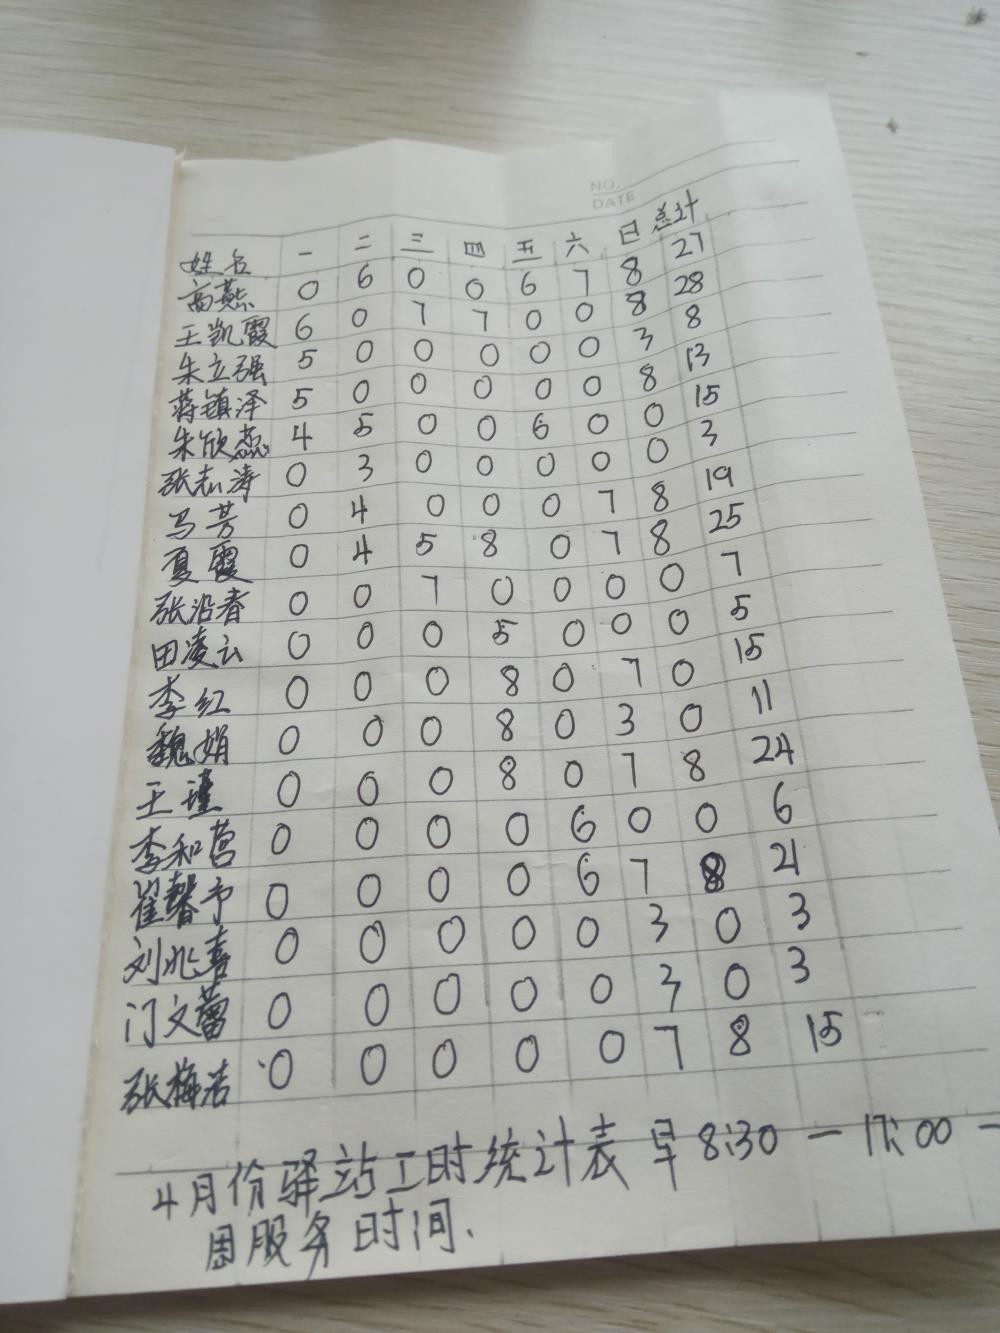 NO.
DATE
姓名 一 二 三 四 五 六 日 总计
高燕 0 6 0 0 6 7 8 27
王凯霞 6 0 7 7 0 0 8 28
朱立强 5 0 0 0 0 0 3 8
蒋镇泽 5 0 0 0 0 0 8 13
朱欣蕊 4 5 0 0 6 0 0 15
张志涛 0 3 0 0 0 0 0 3
马芳 0 4 0 0 0 7 8 19
夏霞 0 4 5 8 0 7 8 25
张沿春 0 0 7 0 0 0 0 7
田凌云 0 0 0 5 0 0 0 5
李红 0 0 0 8 0 7 0 15
魏娟 0 0 0 8 0 3 0 11
王瑾 0 0 0 8 0 7 8 24
李和营 0 0 0 0 6 0 0 6
崔馨予 0 0 0 0 6 7 8 21
刘兆喜 0 0 0 0 0 3 0 3
门文蕾 0 0 0 0 0 3 0 3
张梅洁 0 0 0 0 0 7 8 15
4月份驿站工时统计表 早8:30 — 17:00 一
周服务时间.